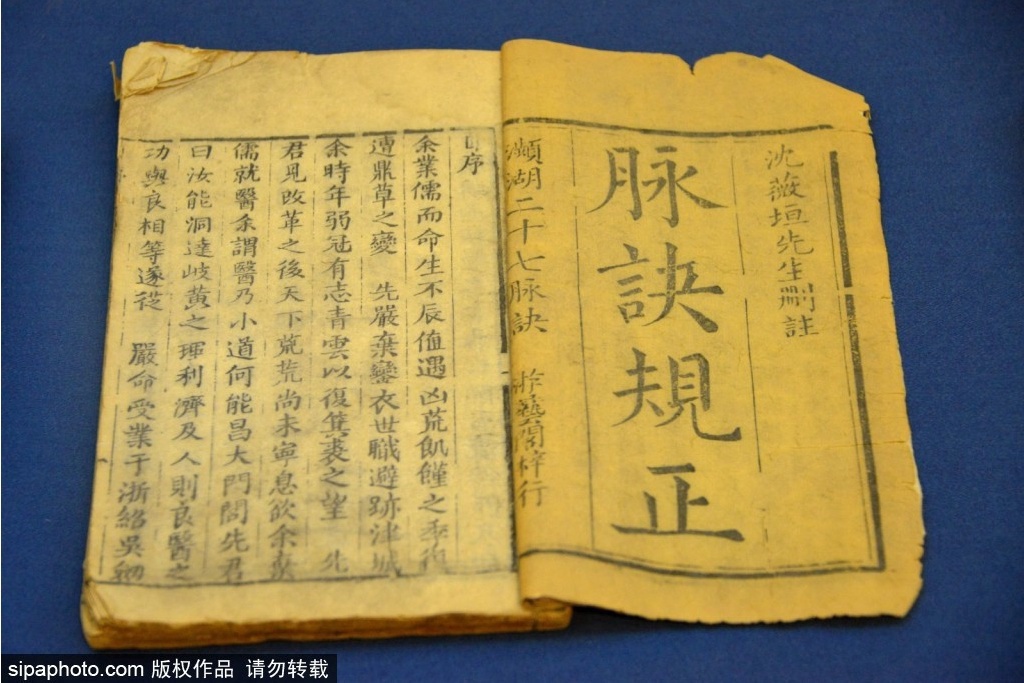 沈薇垣先生刪註
脉訣規正
瀕湖二十七脉訣
梓行
自序
余業儒而命生不辰值遇凶荒飢饉之季復
遭鼎革之變 先嚴棄鑾衣世職避跡津城
余時年弱冠有志青雲以復箕裘之望 先
君見改革之後天下荒荒尚未寧息飲余棄
儒就醫余謂醫乃小道何能昌大門閭先君
曰汝能洞達岐黃之理利濟及人則良醫之
功與良相等遂從 嚴命受業于浙紹吳
sipaphoto.com 版权作品 请勿转载